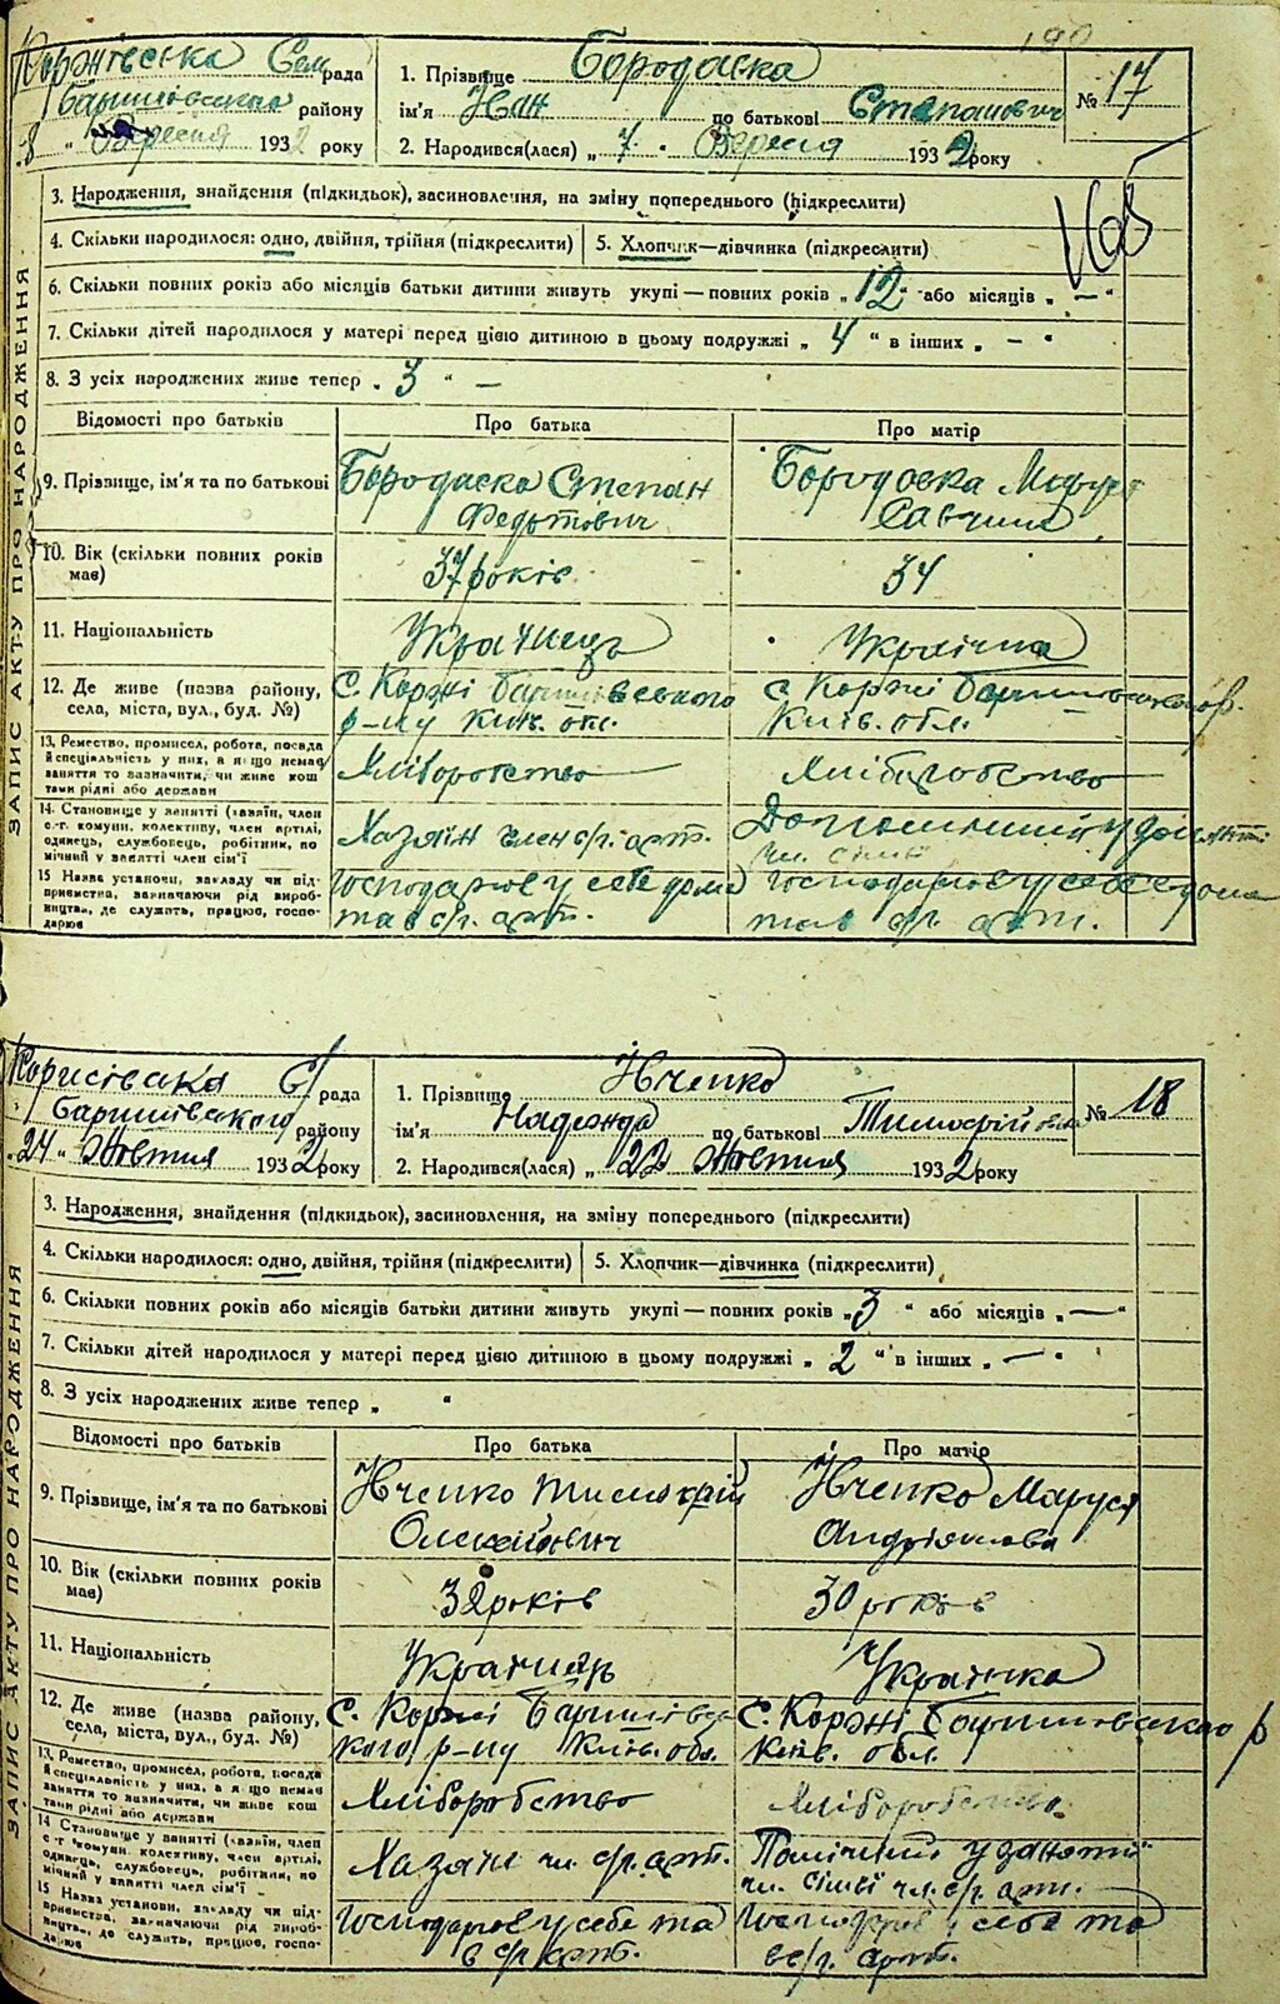 190
Коржівська Сел рада
Баришівського району
„8 " Вересня 1932 року
1. Прізвище Бородавка
ім'я Іван по батькові Степанович
2. Народився(лася) „ 7 " Вересня 1932 року
№ 17
ЗАПИС АКТУ ПРО НАРОДЖЕННЯ
3. Народження, знайдення (підкидьок), засиновлення, на зміну попереднього (підкреслити)
4. Скільки народилося: одно, двійня, трійня (підкреслити)
5. Хлопчик—дівчинка (підкреслити)
6. Скільки повних років або місяців батьки дитини живуть укупі — повних років „ 12 " або місяців „ — "
7. Скільки дітей народилося у матері перед цією дитиною в цьому подружжі „ 4 " в інших „ — "
8. З усіх народжених живе тепер „ 3 " —
Відомості про батьків
Про батька
Про матір
9. Прізвище, ім'я та по батькові
Бородавка Степан
Федотович
Бородавка
Савчина
10. Вік (скільки повних років
має)
37 років
34
11. Національність
Українець
Українка
12. Де живе (назва району,
села, міста, вул., буд. №)
с. Коржі Баришівського
р-ну Київ. обл.
с. Коржі Баришівського р.
Київ. обл.
13. Ремество, промисел, робота, посада
й спеціяльність у них, а якщо немає
заняття то зазначити, чи живе кош
тами рідні або держави
Хліборобство
Хліборобство
14. Становище у занятті (хазяїн, член
с.-г. комуни, колективу, член артілі,
одинець, службовець, робітник, по
мічний у занятті член сім'ї
Хазяїн член с/г. арт.
чл. сім'ї
15 Назва установи, закладу чи під-
приємства, зазначаючи рід вироб-
ництва, де служить, працює, госпо-
дарює
Господарює у себе дома
та в с/г. арт.
Господарює у себе дома
та в с/г. арт.
Коржівська С/ рада
Баришівського району
„24 " Жовтня 1932 року
1. Прізвище Івченко
ім'я Надежда по батькові Тимофійовна
2. Народився(лася) „ 22 Жовтня 1932 року
№ 18
ЗАПИС АКТУ ПРО НАРОДЖЕННЯ
3. Народження, знайдення (підкидьок), засиновлення, на зміну попереднього (підкреслити)
4. Скільки народилося: одно, двійня, трійня (підкреслити)
5. Хлопчик—дівчинка (підкреслити)
6. Скільки повних років або місяців батьки дитини живуть укупі — повних років „ 3 " або місяців „ — "
7. Скільки дітей народилося у матері перед цією дитиною в цьому подружжі „ 2 " в інших „ — "
8. З усіх народжених живе тепер „ "
Відомості про батьків
Про батька
Про матір
9. Прізвище, ім'я та по батькові
Івченко Тимофій
Олексійович
Івченко Маруся
Андріяновa
10. Вік (скільки повних років
має)
32 років
30 років
11. Національність
Українець
Українка
12. Де живе (назва району,
села, міста, вул., буд. №)
с. Коржі Баришівсь
кого р-ну Київ. обл.
с. Коржі Баришівського р
Київ. обл.
13. Ремество, промисел, робота, посада
й спеціяльність у них, а якщо немає
заняття то зазначити, чи живе кош
тами рідні або держави
Хліборобство
Хліборобство
14 Становище у занятті (хазяїн, член
с.-г комуни, колективу, член артілі,
одинець, службовець, робітник, по
мічний у занятті член сім'ї
Хазяїн чл. с/г. арт.
Помічний у занятті
чл. сім'ї чл. с/г. арт.
15 Назва установи, закладу чи під-
приємства, зазначаючи рід вироб-
ництва, де служить, працює, госпо-
дарює
Господарює у себе та
в с/г. арт.
Господарює у себе та
в с/г. арт.